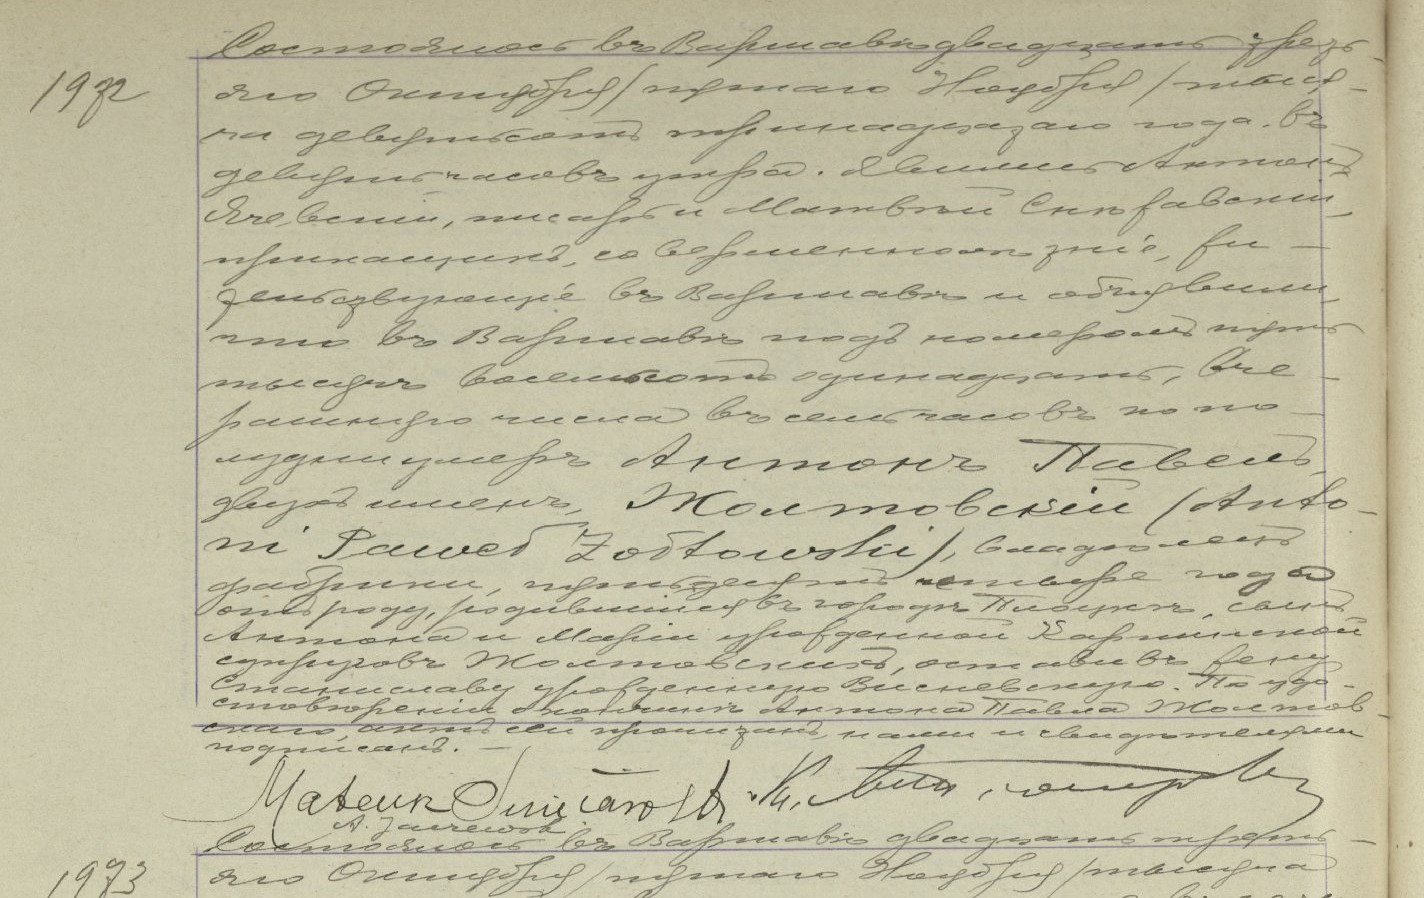 Состоялось въ Варшавѣ двадцать треть
1972
яго Октября /пятаго Ноября/ тыся-
ча девятьсотъ тринадцатаго года. въ
девять часовъ утра. Явились Антонъ
писарь и Матвѣй
прикащикъ, совершеннолѣтніе, жи-
тельствующіе въ Варшавѣ и объявили,
что въ Варшавѣ подъ номеромъ пять
тысячъ восемьсотъ одинадцать, вче-
рашняго числа въ семь часовъ по по-
лудни умеръ Антонъ Павелъ,
двухъ именъ, Жолтовскій (Anto-
ni Paweł Żółtowski), владѣлецъ
фабрики, пятьдесятъ четыре года
отъ роду, родившійся въ городѣ Плоцкѣ, сынъ
Антона и Маріи урожденной
супруговъ Жолтовскихъ, оставивъ жену
Станиславу урожденную Висневскую. По удо-
стовѣреніи о кончинѣ Антона Павла Жолтов-
скаго, актъ сей прочитанъ, нами и свидѣтелями
подписанъ. —
Матеик
Состоялось въ Варшавѣ двадцать треть-
1973
яго Октября /пятаго Ноября/ тысяча